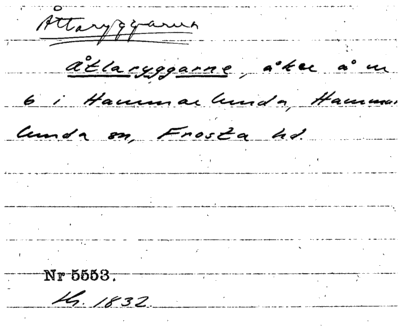 Åttaryggarna
Åtlaryggarne, åker å nr
6 i Hammarlunda, Hammar
lunda sn, Frosta hd.
Nr 5553.
1832.